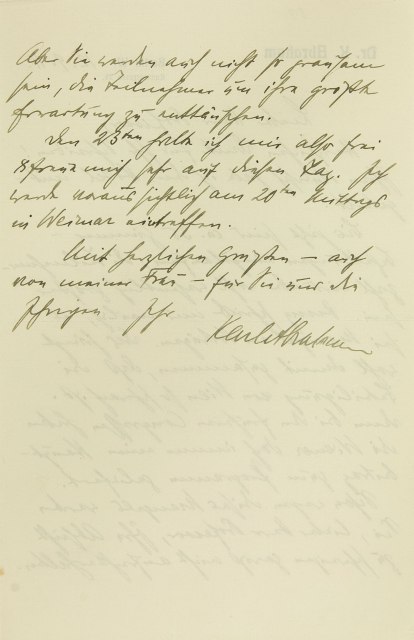 Aber Sie werden auch nicht so grausam
sein, die Teilnehmer um ihre größte
Erwartung zu enttäuschen.
Den 23ten halte ich mir also frei
u. freue mich sehr auf diesen Tag. Ich
werde voraussichtlich am 20ten Mittags
in Weimar eintreffen.
Mit herzlichen Grüßen – auch
von meiner Frau – für Sie und die
Ihrigen Ihr
Karl Abraham